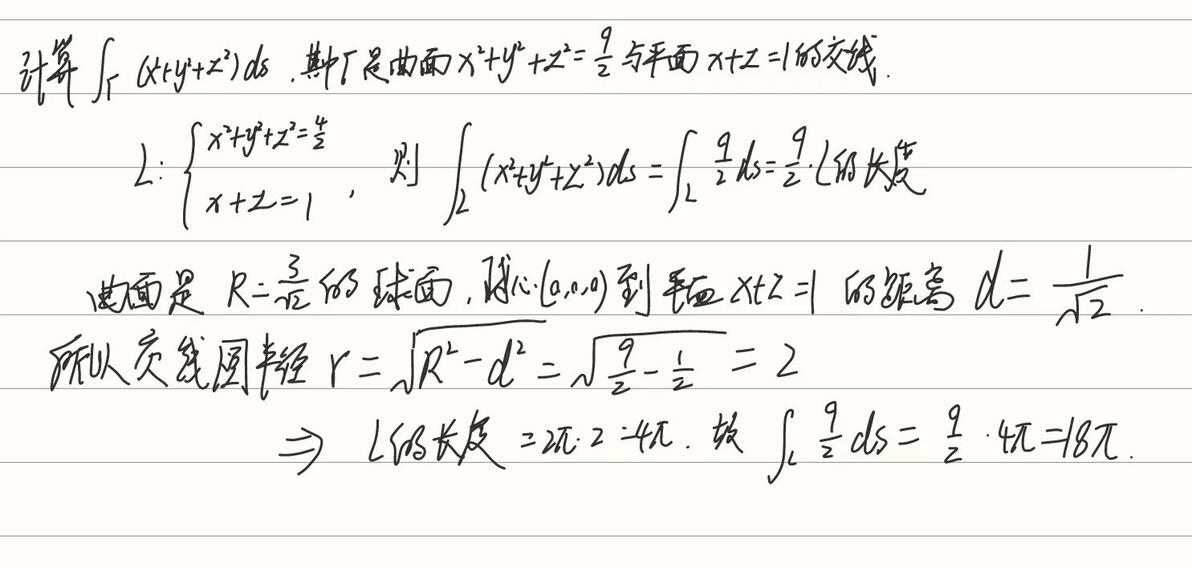 计算 ∫_Γ (x²+y²+z²) ds ,其中Γ是曲面 x²+y²+z² = 9/2 与平面 x+z=1的交线.
L: { x²+y²+z²=4/2, x+z=1 , 则 ∫_L (x²+y²+z²)ds = ∫_L 9/2 ds = 9/2 · L的长度
曲面是 R=3/√2 的球面,球心(0,0,0) 到平面 x+z=1 的距离 d = 1/√2 .
所以交线圆半径 r = √(R²-d²) = √(9/2 - 1/2) = 2
⇒ L的长度 = 2π·2 = 4π. 故 ∫_L 9/2 ds = 9/2 · 4π = 18π.